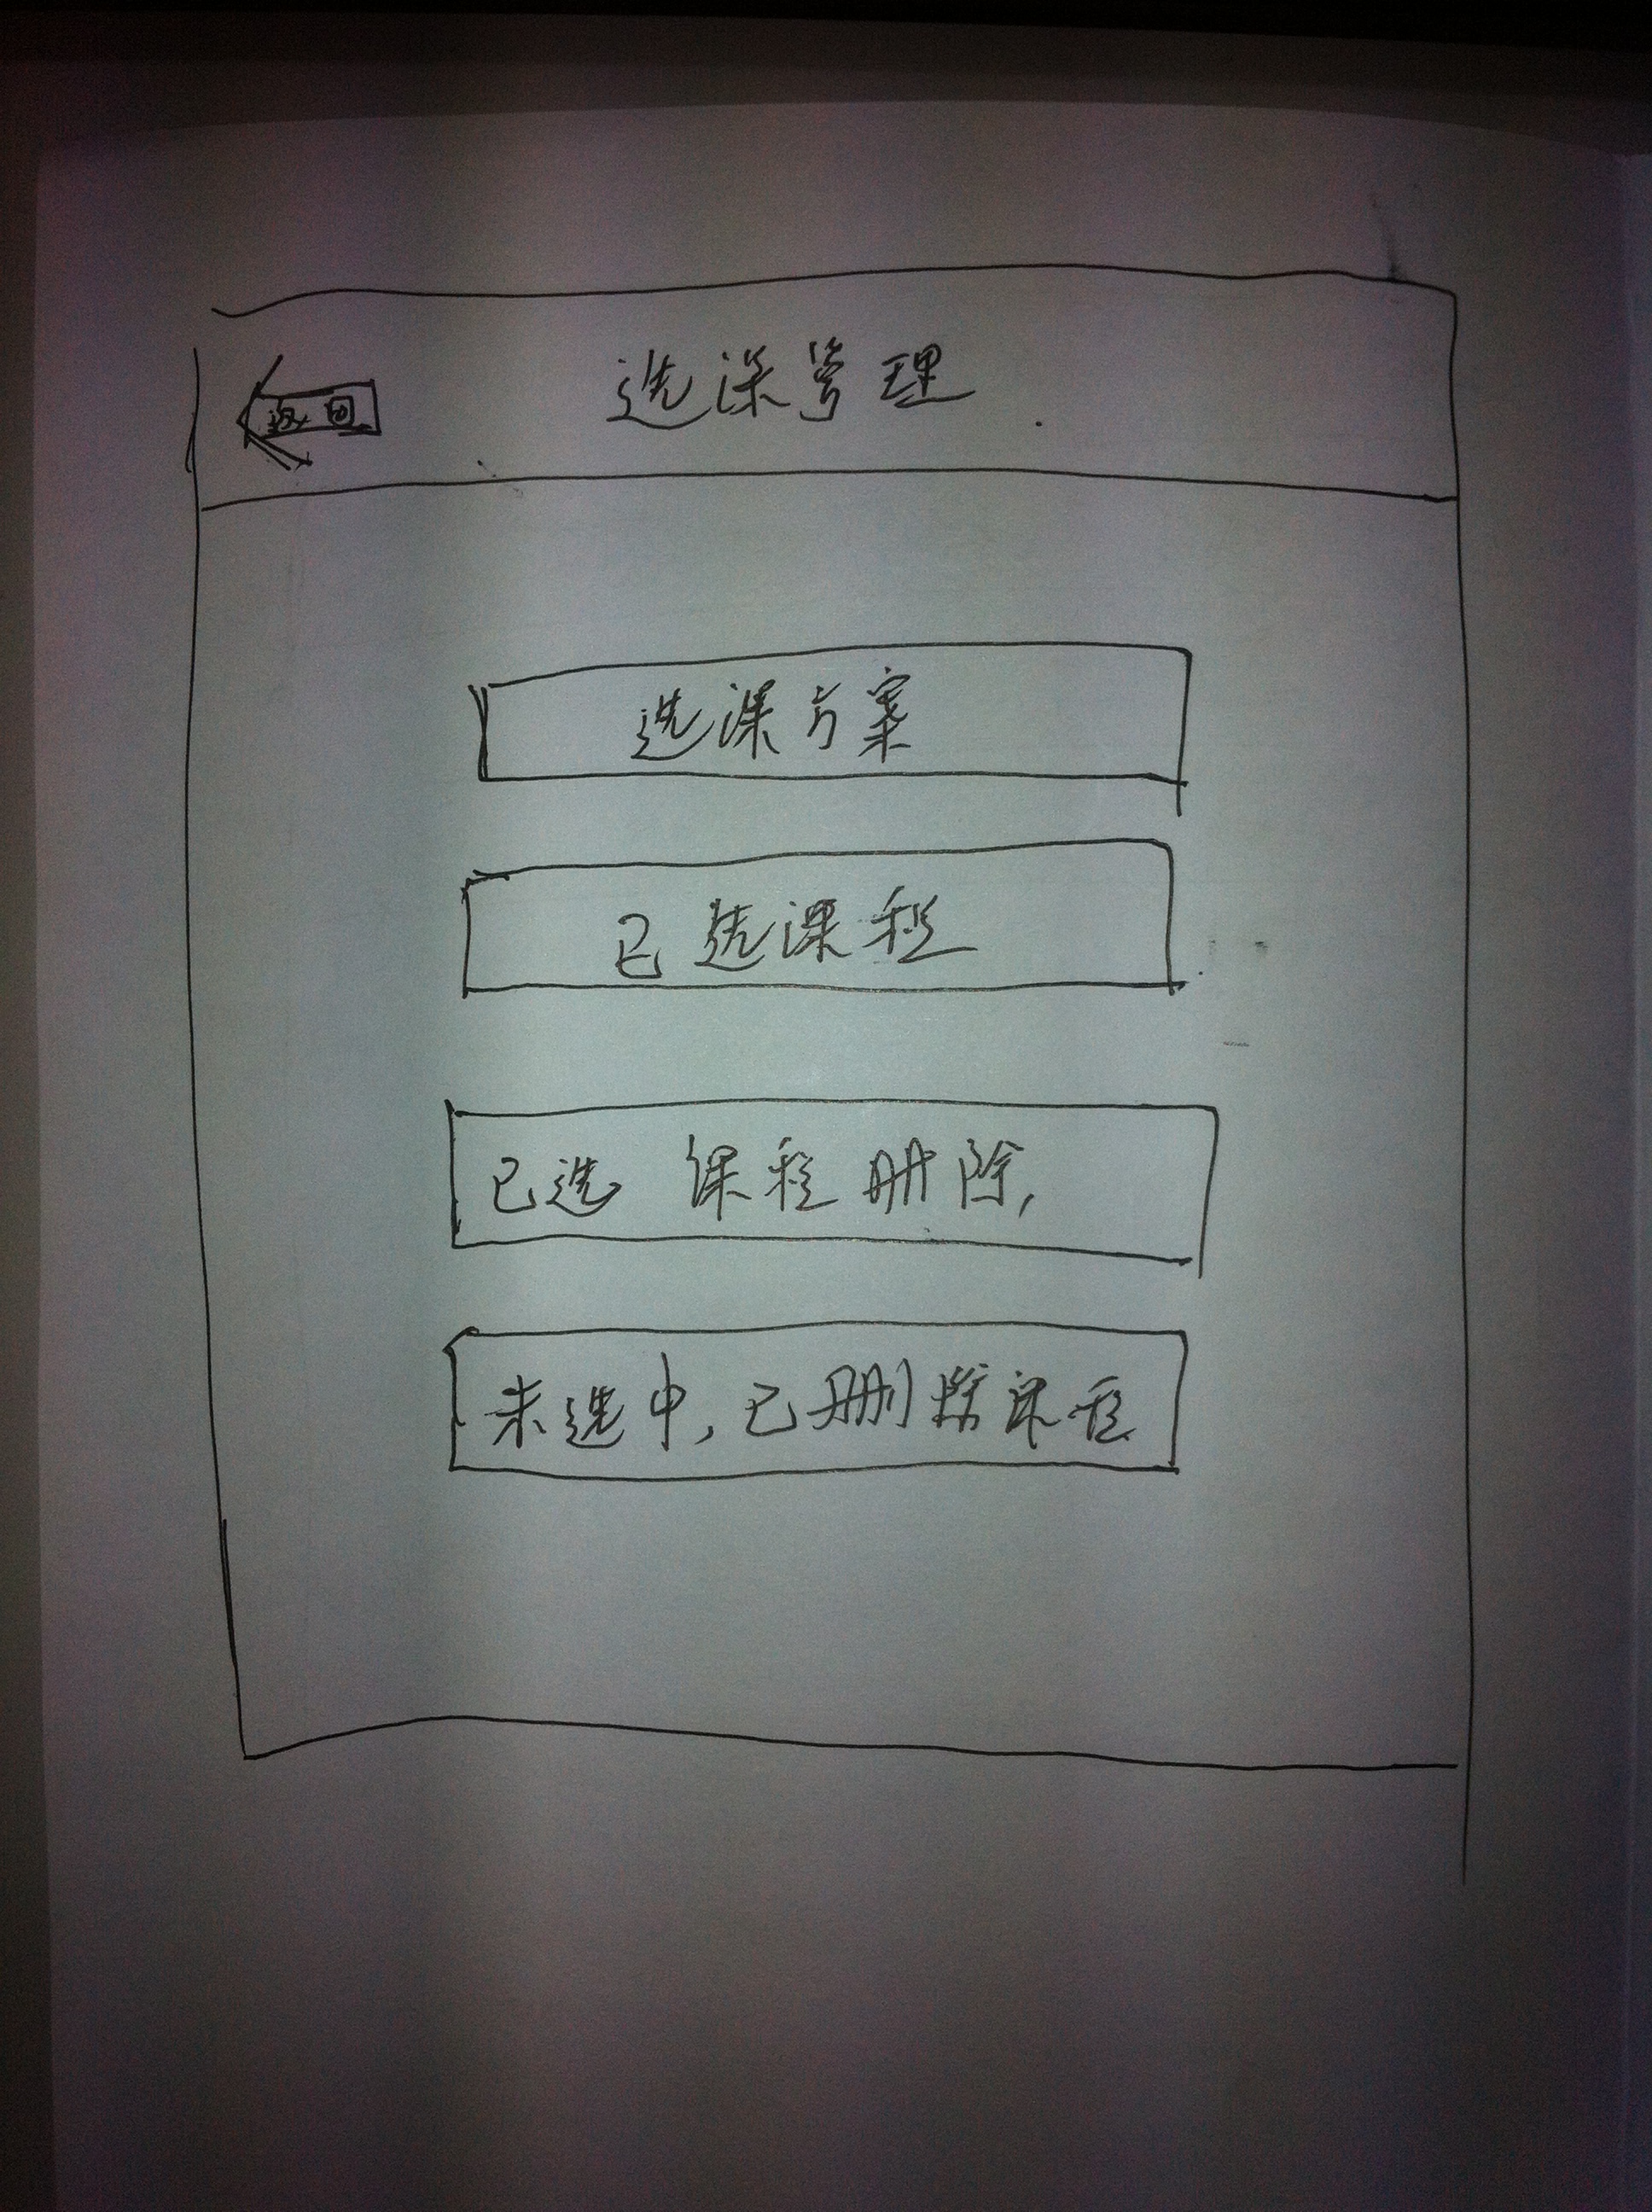 返回
选课管理
选课方案
已选课程
已选 课程删除,
未选中,已删除课程